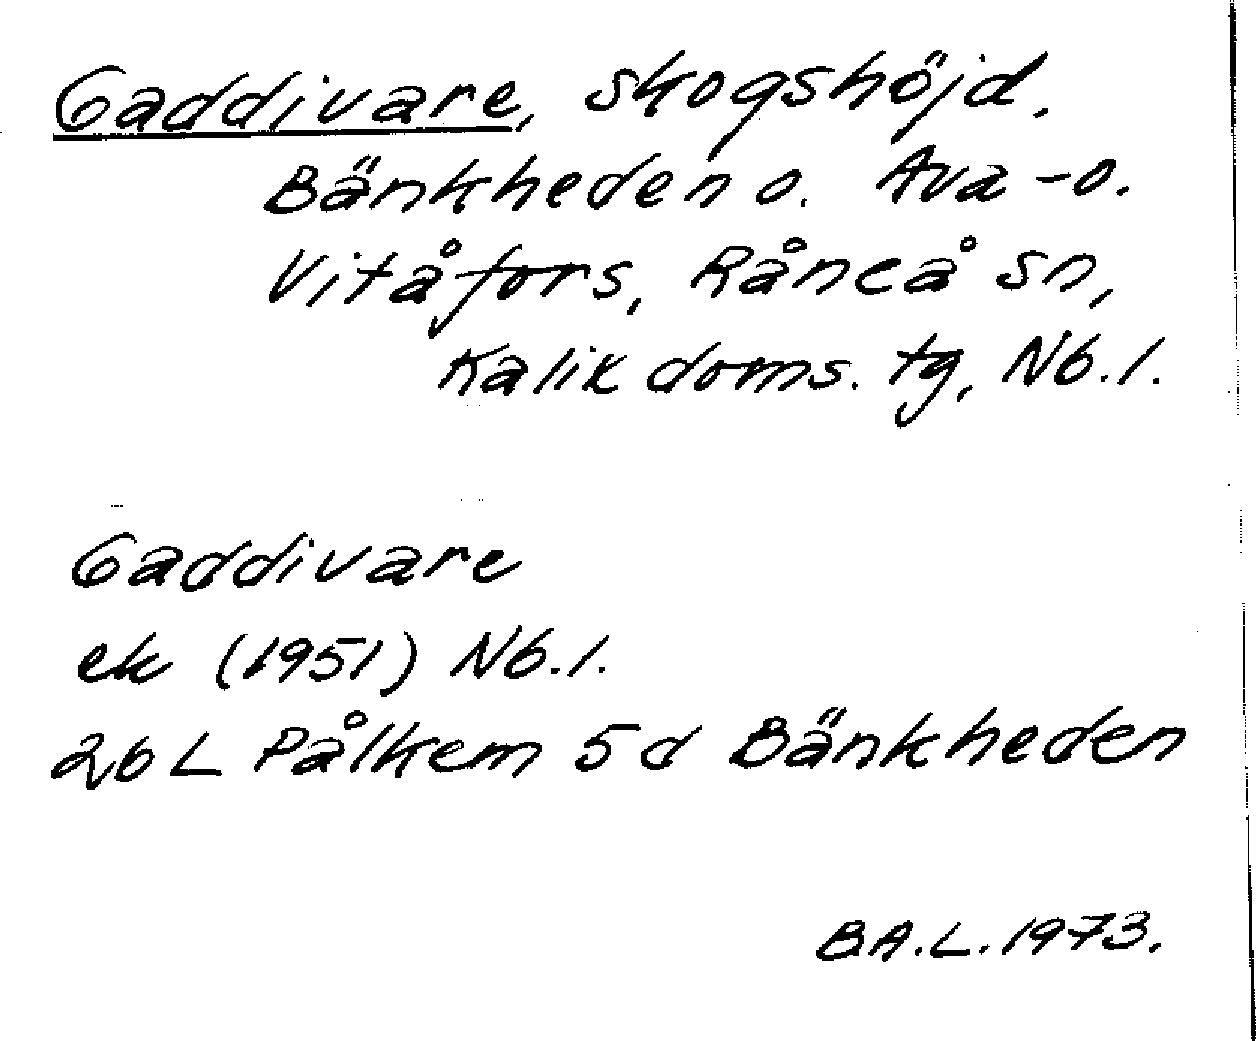 Gaddivare, skogshöjd.
Bänkheden o. Ava -o.
Vitåfors, Råneå sn,
Kalix doms. tg, Nb.l.
Gaddivare
ek (1951) Nb.l.
26 L Pålkem 5 d Bänkheden
B.A.L. 1973.